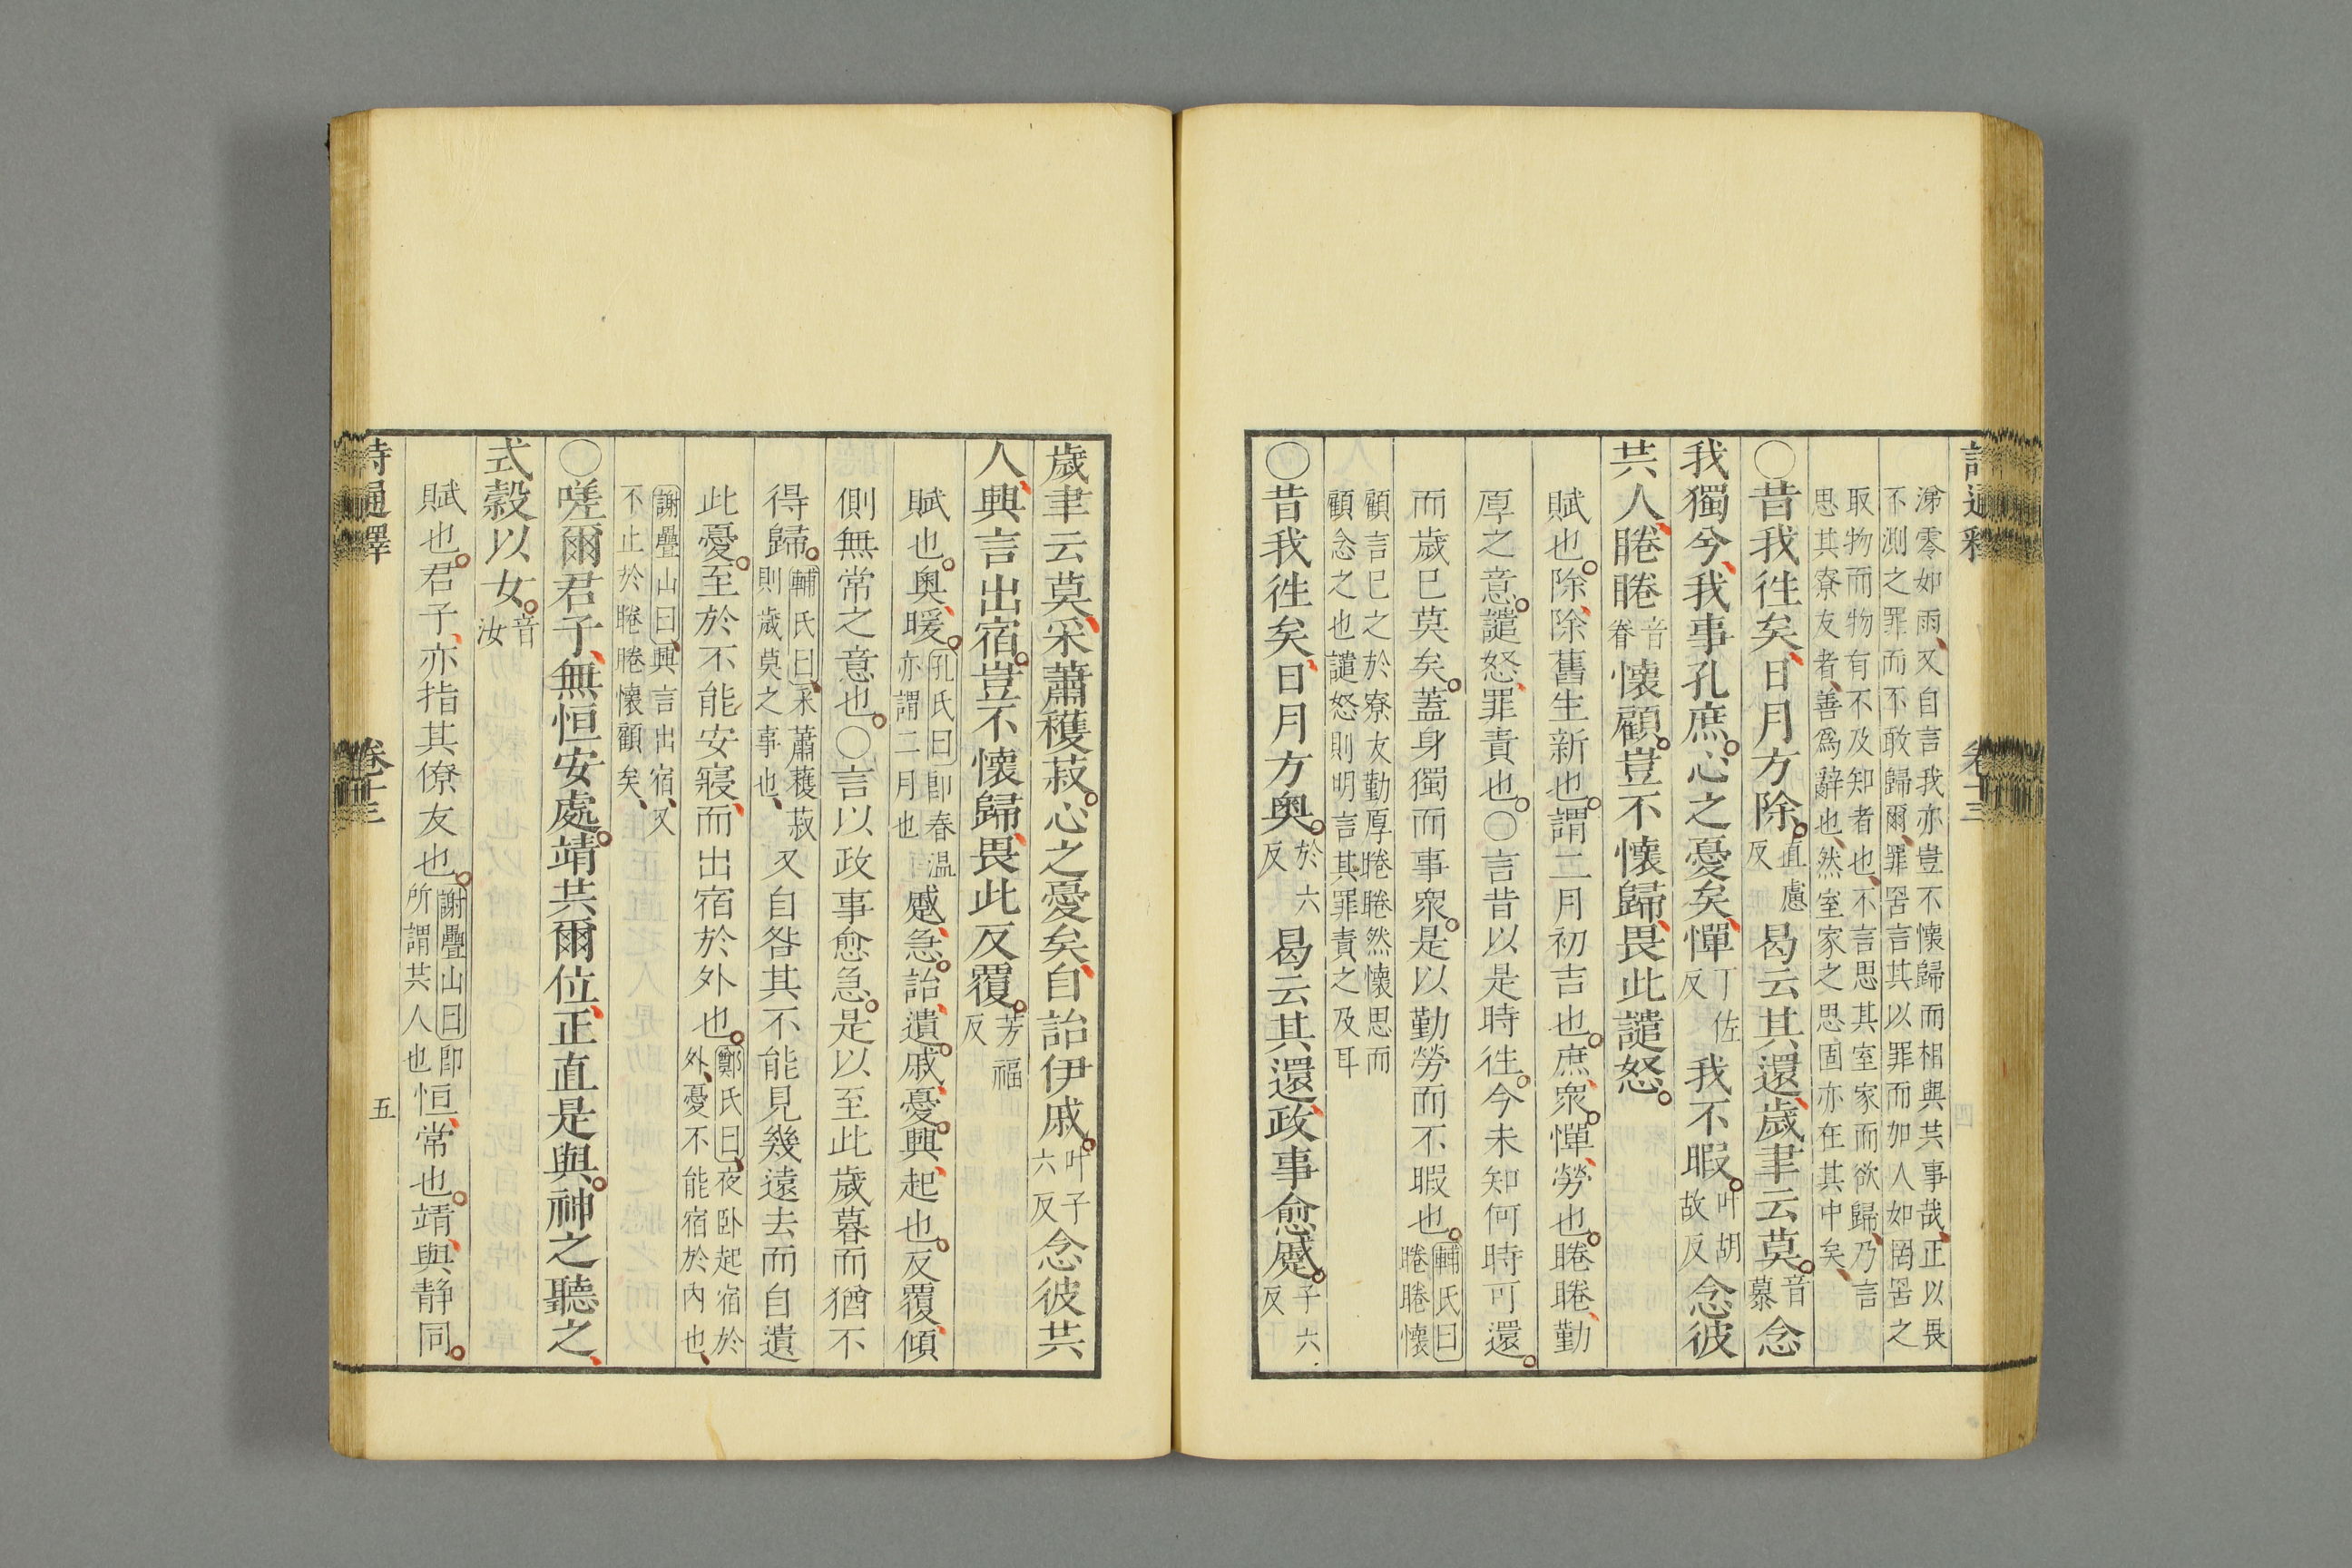 詩通釋 卷十三
涕零如雨又自言我亦豈不懷歸而相與共事哉正以畏
不測之罪而不敢歸爾罪罟言其以罪而加人如罔罟之
取物而物有不及知者也不言思其室家而欲歸乃言
思其寮友者善爲辭也然室家之思固亦在其中矣
〇昔我徃矣日月方除直慮反曷云其還歲聿云莫音慕念
我獨兮我事孔庶心之憂矣憚丁佐反我不暇叶胡故反念彼
共人睠睠音眷懷顧豈不懷歸畏此譴怒
賦也除除舊生新也謂二月初吉也庶衆憚勞也睠睠勤
厚之意譴怒罪責也〇言昔以是時徃今未知何時可還
而歲巳莫矣蓋身獨而事衆是以勤勞而不暇也輔氏曰睠睠懷
顧言巳之於寮友勤厚睠睠然懷思而
顧念之也譴怒則明言其罪責之及耳
〇昔我徃矣日月方奥於六反曷云其還政事愈蹙子六反
歲聿云莫采蕭穫菽心之憂矣自詒伊戚叶子六反念彼共
人興言出宿豈不懷歸畏此反覆芳福反
賦也奥暖孔氏曰卽春温亦謂二月也蹙急詒遺戚憂興起也反覆傾
側無常之意也〇言以政事愈急是以至此歲暮而猶不
得歸輔氏曰采蕭穫菽則歲莫之事也又自咎其不能見幾遠去而自遺
此憂至於不能安寢而出宿於外也鄭氏曰夜卧起宿於外憂不能宿於内也
謝疊山曰興言出宿又
不止於睠睠懷顧矣
〇嗟爾君子無恒安處靖共爾位正直是與神之聽之
式穀以女音汝
賦也君子亦指其僚友也謝疊山曰卽所謂共人也恒常也靖與静同
詩通釋 卷十三 五